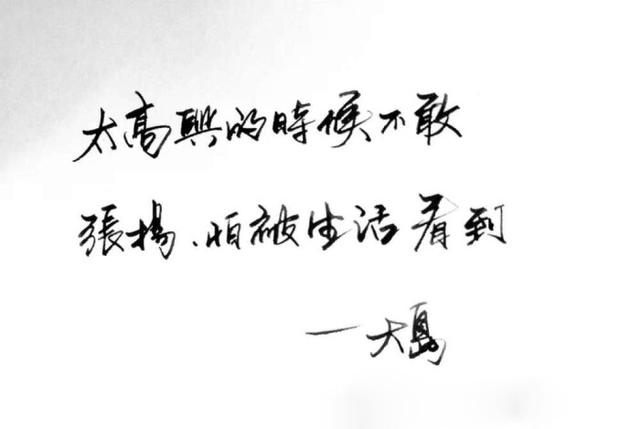 太高興的時候不敢
張揚、怕被生活看到
一大島